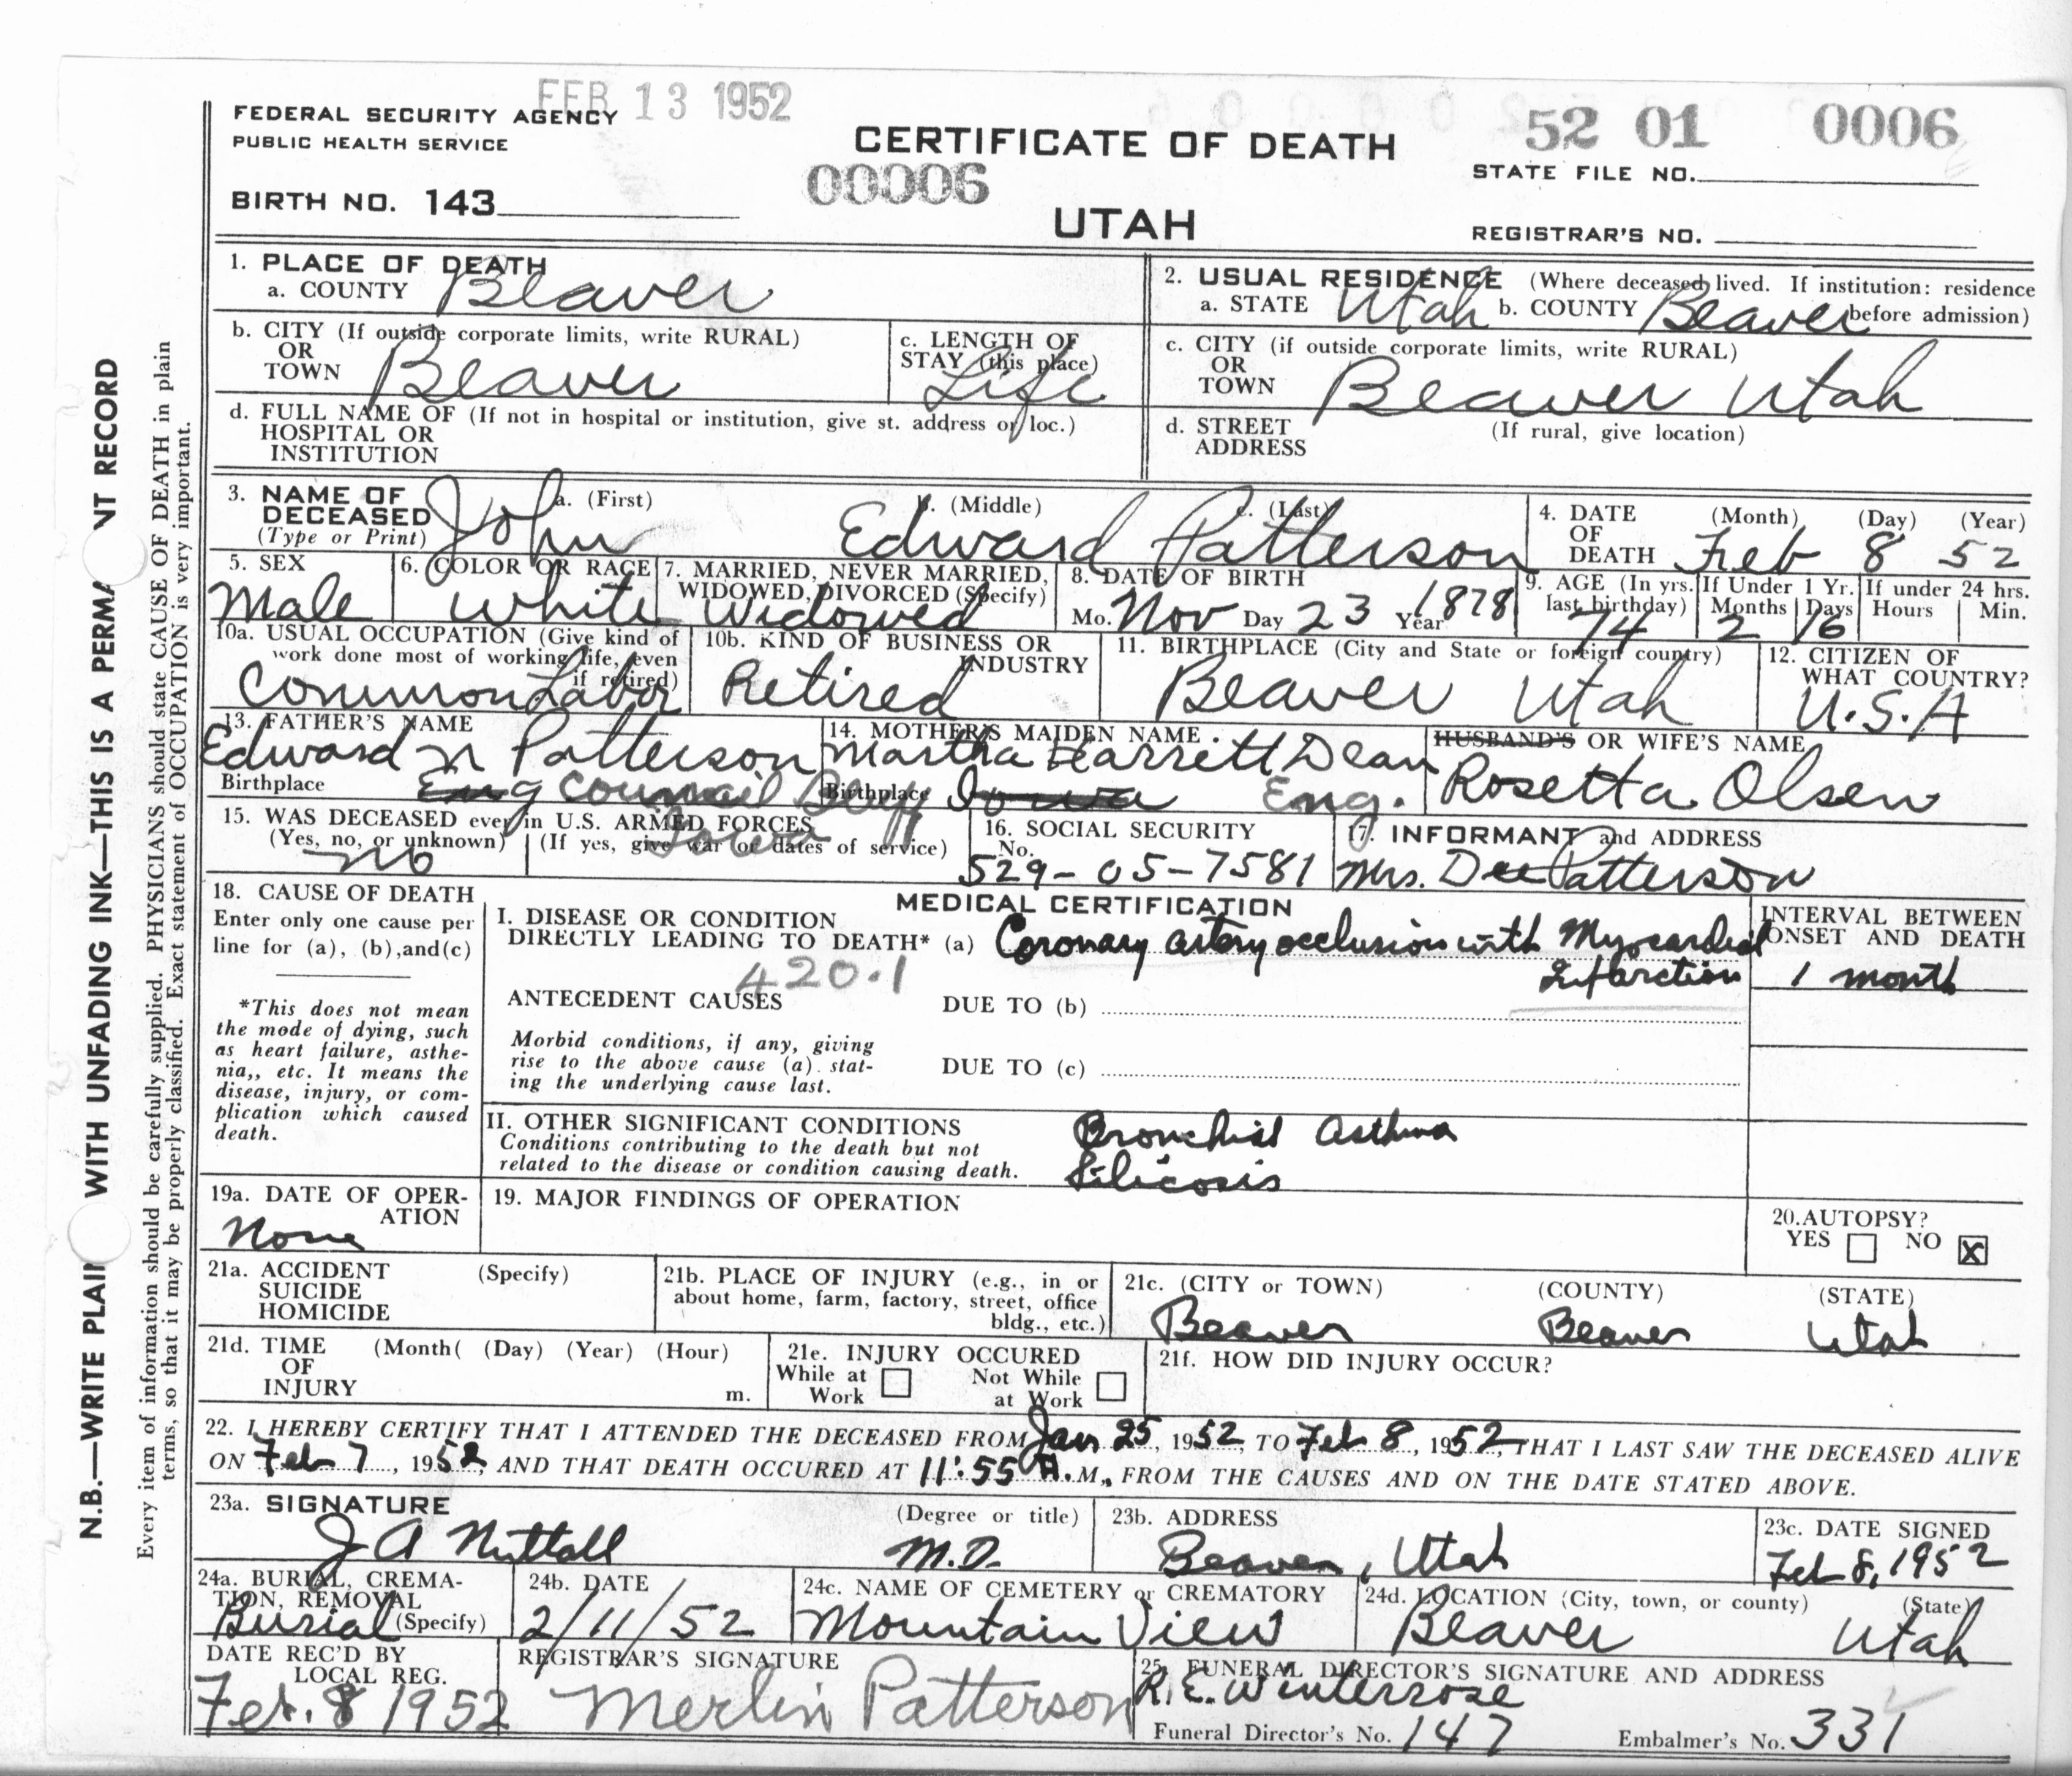 FEB 13 1952
FEDERAL SECURITY AGENCY
PUBLIC HEALTH SERVICE
CERTIFICATE OF DEATH
52 01 0006
STATE FILE NO.
00006
BIRTH NO. 143
UTAH
REGISTRAR'S NO.
1. PLACE OF DEATH
a. COUNTY Beaver
2. USUAL RESIDENCE (Where deceased lived. If institution: residence
a. STATE Utah b. COUNTY Beaver before admission)
b. CITY (If outside corporate limits, write RURAL)
OR
TOWN Beaver
c. LENGTH OF
STAY (this place)
Life
c. CITY (if outside corporate limits, write RURAL)
OR
TOWN Beaver Utah
d. FULL NAME OF (If not in hospital or institution, give st. address or loc.)
HOSPITAL OR
INSTITUTION
d. STREET (If rural, give location)
ADDRESS
3. NAME OF a. (First) b. (Middle) c. (Last)
DECEASED
(Type or Print) John Edward Patterson
4. DATE (Month) (Day) (Year)
OF
DEATH Feb 8 52
5. SEX
Male
6. COLOR OR RACE
White
7. MARRIED, NEVER MARRIED,
WIDOWED, DIVORCED (Specify)
Widowed
8. DATE OF BIRTH
Mo. Nov Day 23 Year 1878
9. AGE (In yrs. If Under 1 Yr. If under 24 hrs.
last birthday) Months Days Hours Min.
74 2 16
10a. USUAL OCCUPATION (Give kind of
work done most of working life, even
if retired)
Common Labor
10b. KIND OF BUSINESS OR
INDUSTRY
Retired
11. BIRTHPLACE (City and State or foreign country)
Beaver Utah
12. CITIZEN OF
WHAT COUNTRY?
U.S.A
13. FATHER'S NAME
Edward N Patterson
Birthplace Eng Council Bluff
Iowa
14. MOTHER'S MAIDEN NAME
Martha Harrett Dean
Birthplace Iowa Eng.
HUSBAND'S OR WIFE'S NAME
Rosetta Olsen
15. WAS DECEASED ever in U.S. ARMED FORCES
(Yes, no, or unknown) (If yes, give war or dates of service)
No
16. SOCIAL SECURITY
No.
529-05-7581
17. INFORMANT and ADDRESS
Mrs. Dee Patterson
18. CAUSE OF DEATH
Enter only one cause per
line for (a), (b), and (c)
*This does not mean
the mode of dying, such
as heart failure, asthe-
nia,, etc. It means the
disease, injury, or com-
plication which caused
death.
MEDICAL CERTIFICATION
I. DISEASE OR CONDITION
DIRECTLY LEADING TO DEATH* (a) Coronary artery occlusion with Myocardial
Infarction
420.1
INTERVAL BETWEEN
ONSET AND DEATH
1 month
ANTECEDENT CAUSES DUE TO (b)
Morbid conditions, if any, giving
rise to the above cause (a) stat-
ing the underlying cause last.
DUE TO (c)
II. OTHER SIGNIFICANT CONDITIONS
Conditions contributing to the death but not
related to the disease or condition causing death.
Bronchial Asthma
Silicosis
19a. DATE OF OPER-
ATION
None
19. MAJOR FINDINGS OF OPERATION
20. AUTOPSY?
YES NO X
21a. ACCIDENT (Specify)
SUICIDE
HOMICIDE
21b. PLACE OF INJURY (e.g., in or
about home, farm, factory, street, office
bldg., etc.)
21c. (CITY or TOWN) (COUNTY) (STATE)
Beaver Beaver Utah
21d. TIME (Month( (Day) (Year) (Hour)
OF
INJURY m.
21e. INJURY OCCURED
While at Not While
Work at Work
21f. HOW DID INJURY OCCUR?
22. I HEREBY CERTIFY THAT I ATTENDED THE DECEASED FROM Jan 25, 1952, TO Feb 8, 1952, THAT I LAST SAW THE DECEASED ALIVE
ON Feb 7, 1952, AND THAT DEATH OCCURED AT 11:55 A.M., FROM THE CAUSES AND ON THE DATE STATED ABOVE.
23a. SIGNATURE (Degree or title)
J A Nuttall M.D.
23b. ADDRESS
Beaver, Utah
23c. DATE SIGNED
Feb 8, 1952
24a. BURIAL, CREMA-
TION, REMOVAL
Burial (Specify)
24b. DATE
2/11/52
24c. NAME OF CEMETERY or CREMATORY
Mountain View
24d. LOCATION (City, town, or county) (State)
Beaver Utah
DATE REC'D BY
LOCAL REG.
Feb. 8 1952
REGISTRAR'S SIGNATURE
Merlin Patterson
25. FUNERAL DIRECTOR'S SIGNATURE AND ADDRESS
R. E. Winterrose
Funeral Director's No. 147 Embalmer's No. 331
N.B.—WRITE PLAIN WITH UNFADING INK—THIS IS A PERMA NT RECORD
Every item of information should be carefully supplied. PHYSICIANS should state CAUSE OF DEATH in plain
terms, so that it may be properly classified. Exact statement of OCCUPATION is very important.